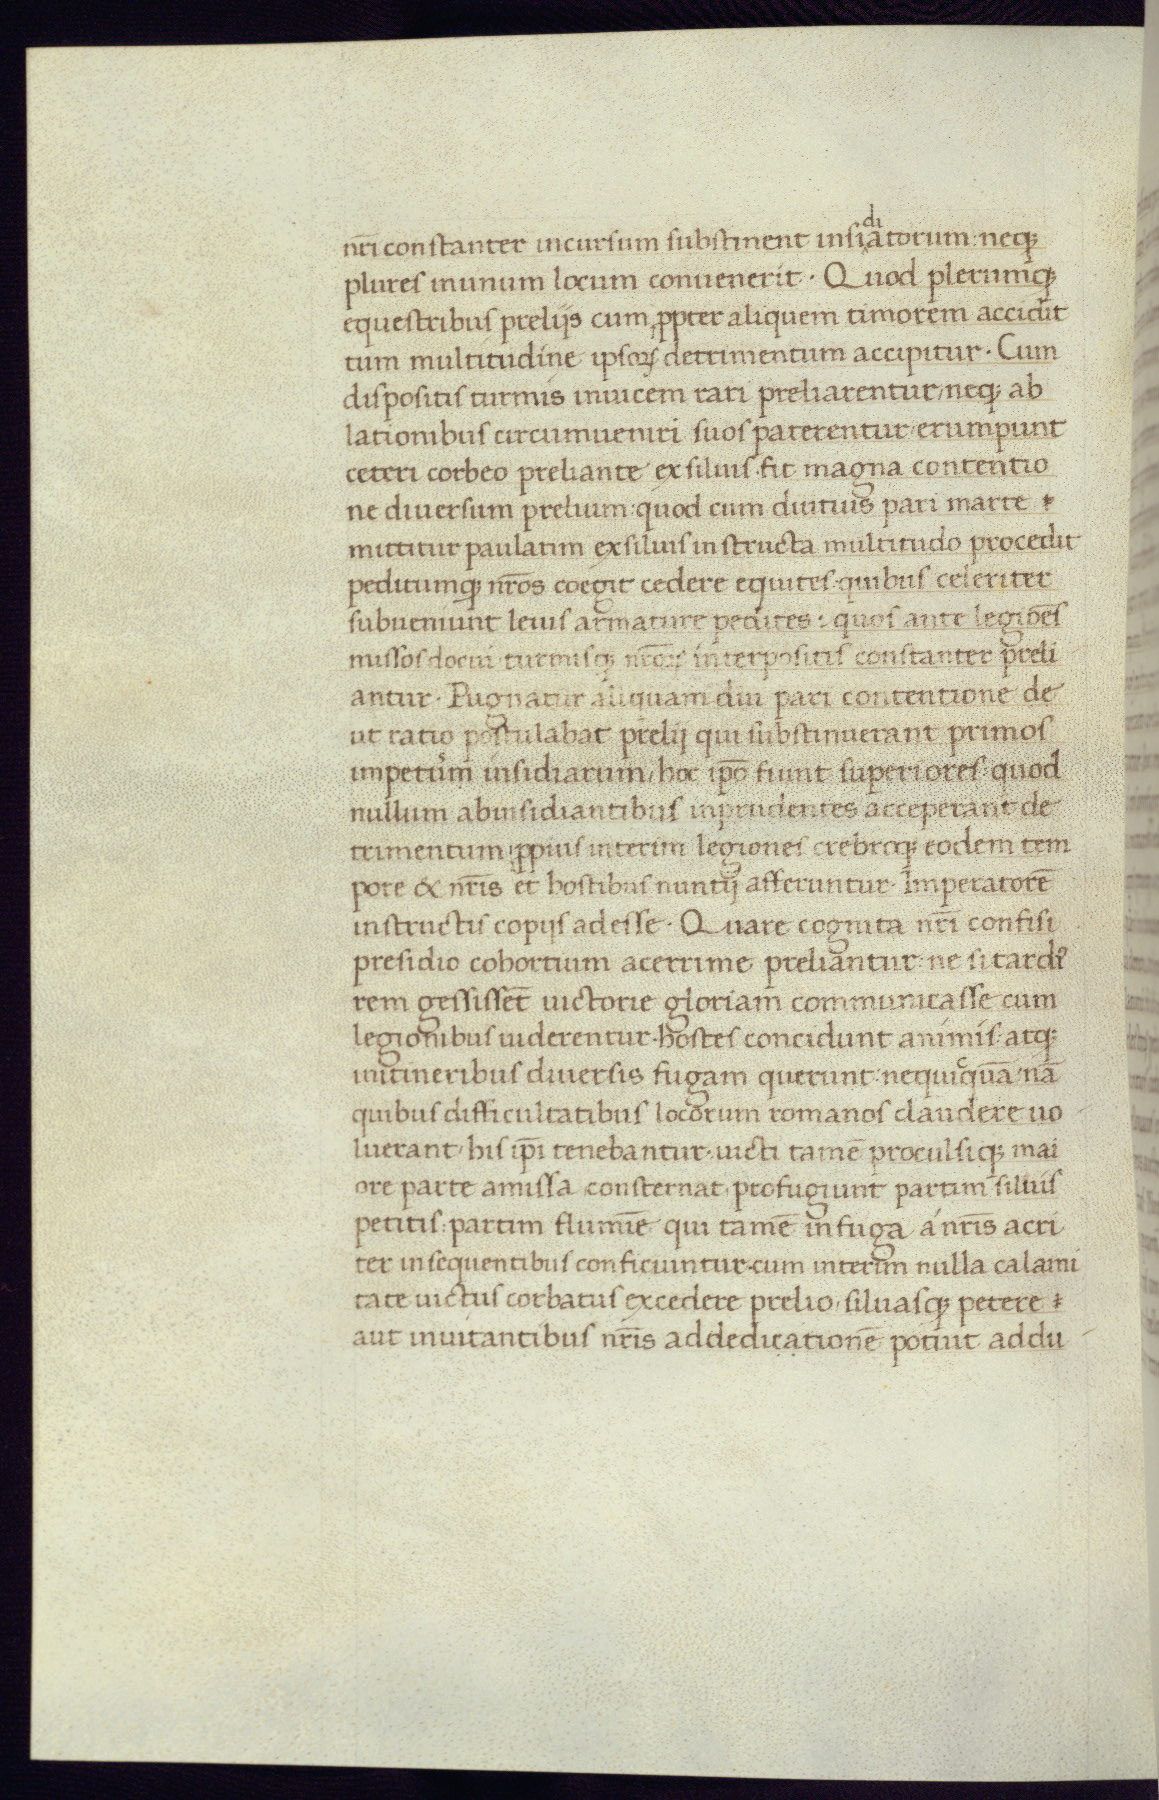 nr̃i constanter incursum substinent insidiatorum: neq;
plures inunum locum conuenerit · Quod plerumq;
equestribus prelijs cum ꝓpter aliquem timorem accidit
tum multitudine ipsoꝝ detrimentum accipitur · Cum
dispositis turmis inuicem rari preliarentur, neq; ab
lationibus circumueniri suos paterentur, erumpunt
ceteri corbeo preliante exsiluis · fit magna contentio
ne diuersum prelium: quod cum diutius pari marte
mittitur paulatim exsiluis instructa multitudo procedit
peditumq; nr̃os coegit cedere equites · quibus celeriter
subueniunt leuis armature pedites: quos ante legiones
missos docui · turmisq; nr̃oꝝ interpositis constanter preli
antur · Pugnatur aliquam diu pari contentione de
ut ratio postulabat prelij qui substinuerant primos
impetum insidiarum, hoc ip̃o fiunt superiores · quod
nullum abinsidiantibus inprudentes acceperant de
trimentum ꝓpius interim legiones crebroq; eodem tem
pore & nr̃is et hostibus nuntij afferuntur · Imperatorẽ
instructis copijs adesse · Quare cognita nr̃i confisi
presidio cohortium acerrime preliantur: ne si tardi⁹
rem gessissẽt uictorie gloriam communicasse cum
legionibus uiderentur · hostes concidunt animis: atq;
initineribus diuersis fugam querunt: nequicquã · nã
quibus difficultatibus locorum romanos claudere uo
luerant, his ip̃i tenebantur · uicti tamẽ proculsiq; mai
ore parte amissa consternat, profugiunt partim siluis
petitis: partim flumiẽ qui tamẽ infuga ánr̃is acri
ter insequentibus conficiuntur · cum interim nulla calami
tate uictus corbatus excedere prelio, siluasq; petere
aut inuitantibus nr̃is addedicationẽ potiut addu